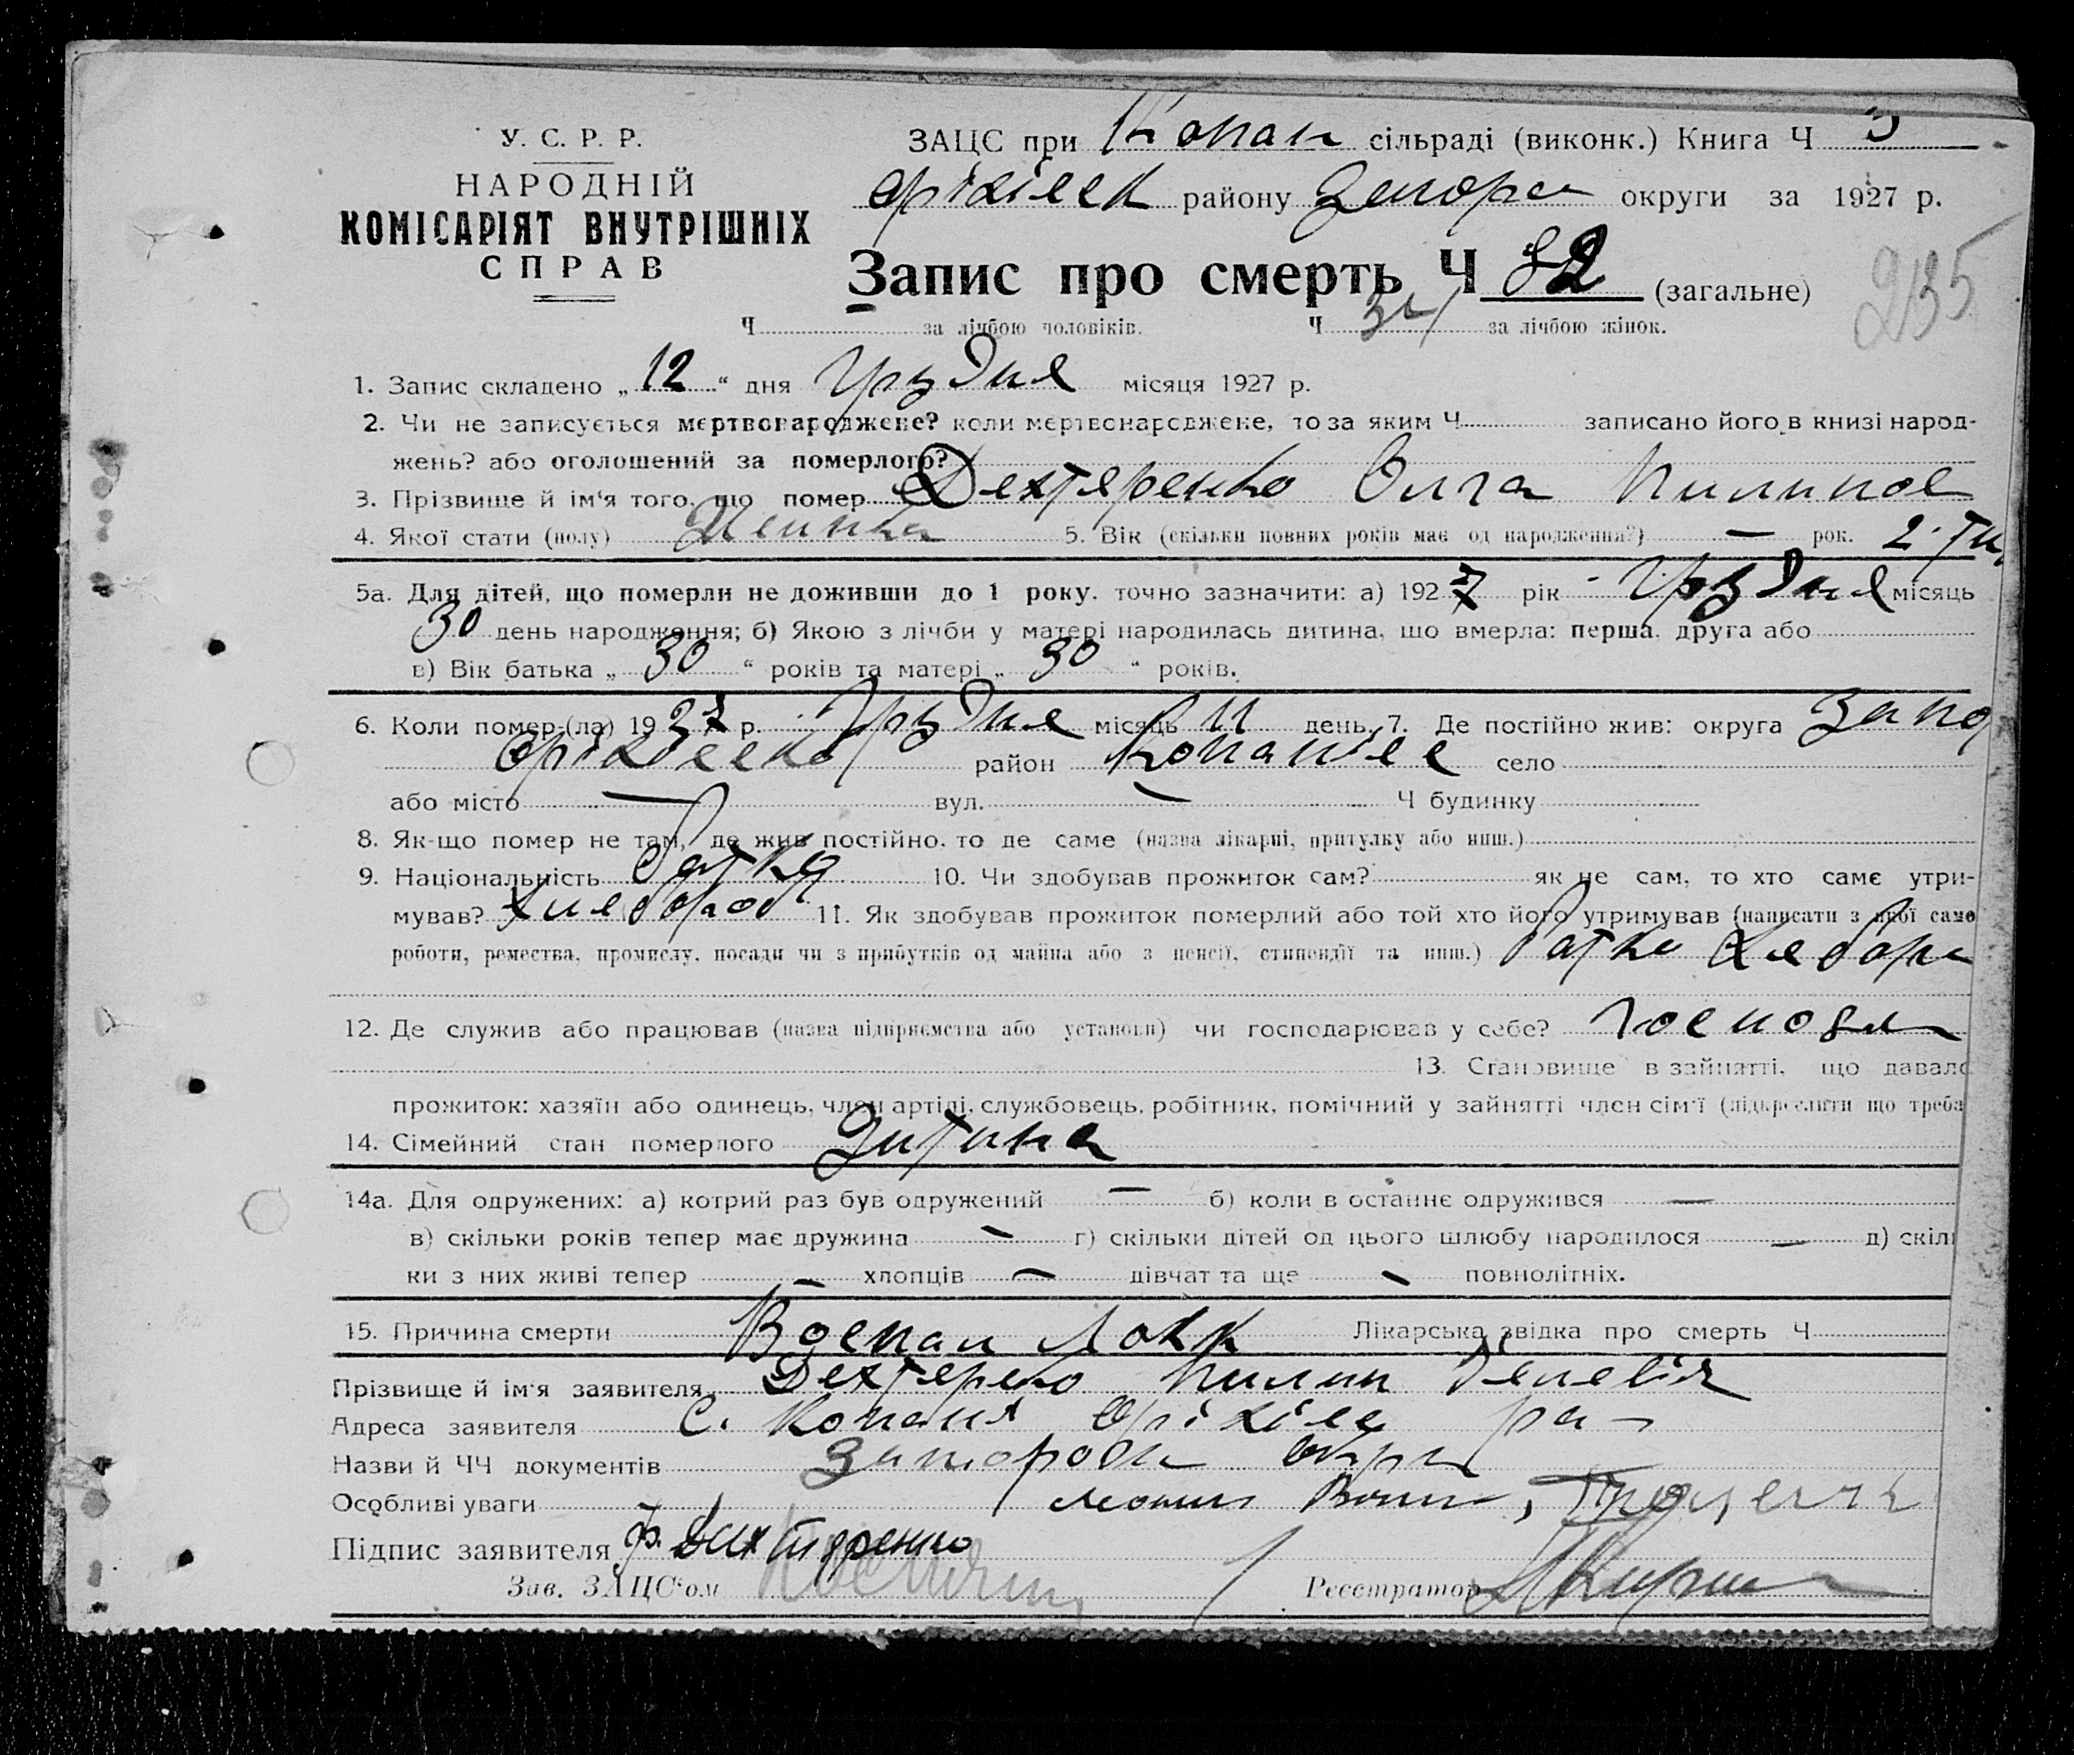 У. С. Р. Р.
НАРОДНІЙ
КОМІСАРІЯТ ВНУТРІШНІХ
СПРАВ
ЗАЦС при Копан сільраді (виконк.) Книга Ч 3
оріхівськ району Запоріз округи за 1927 р.
Запис про смерть Ч 82 (загальне)
235
Ч за лічбою чоловіків. Ч за лічбою жінок.
1. Запис складено „12“ дня Грудня місяця 1927 р.
2. Чи не записується мертвонароджене? коли мертвонароджене, то за яким Ч записано його в книзі народ-
жень? або оголошений за померлого?
3. Прізвище й ім‘я того, що помер Дехтяренко Олга Пилипов
4. Якої стати (полу) Жинка 5. Вік (скільки повних років має од народження?) — рок. 2
5а. Для дітей, що померли не доживши до 1 року. точно зазначити: а) 1927 рік Грудня місяць
30 день народження; б) Якою з лічби у матері народилась дитина, що вмерла: перша, друга або
в) Вік батька „30“ років та матері „30“ років.
6. Коли помер-(ла) 1927 р. Грудня місяць 11 день. 7. Де постійно жив: округа Запо
район село
або місто — вул. — Ч будинку
8. Як-що помер не там, де жив постійно, то де саме (назва лікарні, притулку або инш.)
9. Національність 10. Чи здобував прожиток сам? як не сам, то хто саме утри-
мував? Хлебороб 11. Як здобував прожиток померлий або той хто його утримував (написати з якої само
роботи, ремества, промислу, посади чи з прибутків од майна або з пенсії, стипендії та инш.) Батко
12. Де служив або працював (назва підприємства або установи) чи господарював у себе?
13. Становище в зайнятті, що давало
прожиток: хазяїн або одинець, член артілі, службовець, робітник, помічний у зайнятті член сім‘ї (підкреслити що треба
14. Сімейний стан померлого Дитина
14а. Для одружених: а) котрий раз був одружений — б) коли в останнє одружився —
в) скільки років тепер має дружина — г) скільки дітей од цього шлюбу народилося — д) скіль
ки з них живі тепер — хлопців — дівчат та ще — повнолітніх.
15. Причина смерти Воспал Лохк Лікарська звідка про смерть Ч
Прізвище й ім‘я заявителя Пилип
Адреса заявителя С. Копані Оріхівс ра-
Назви й ЧЧ документів
Особливі уваги
Підпис заявителя
Зав. ЗАЦС‘ом Реєстратор